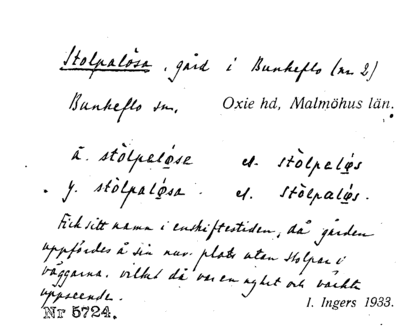 Stolpalösa, gård i Bunkeflo (nr 2)
Bunkeflo sn. Oxie hd, Malmöhus län.
ä. stòlpelǿ̨se el. stòlpelǿ̨s
y. stòlpalǿ̨sa. el. stòlpalǿ̨s.
Fick sitt namn i enskiftestiden, då gården
uppfördes å sin nuv. plats utan stolpar i
väggarna. vilket då var en nyhet och väckte
uppseende.
I. Ingers 1933.
Nr 5724.